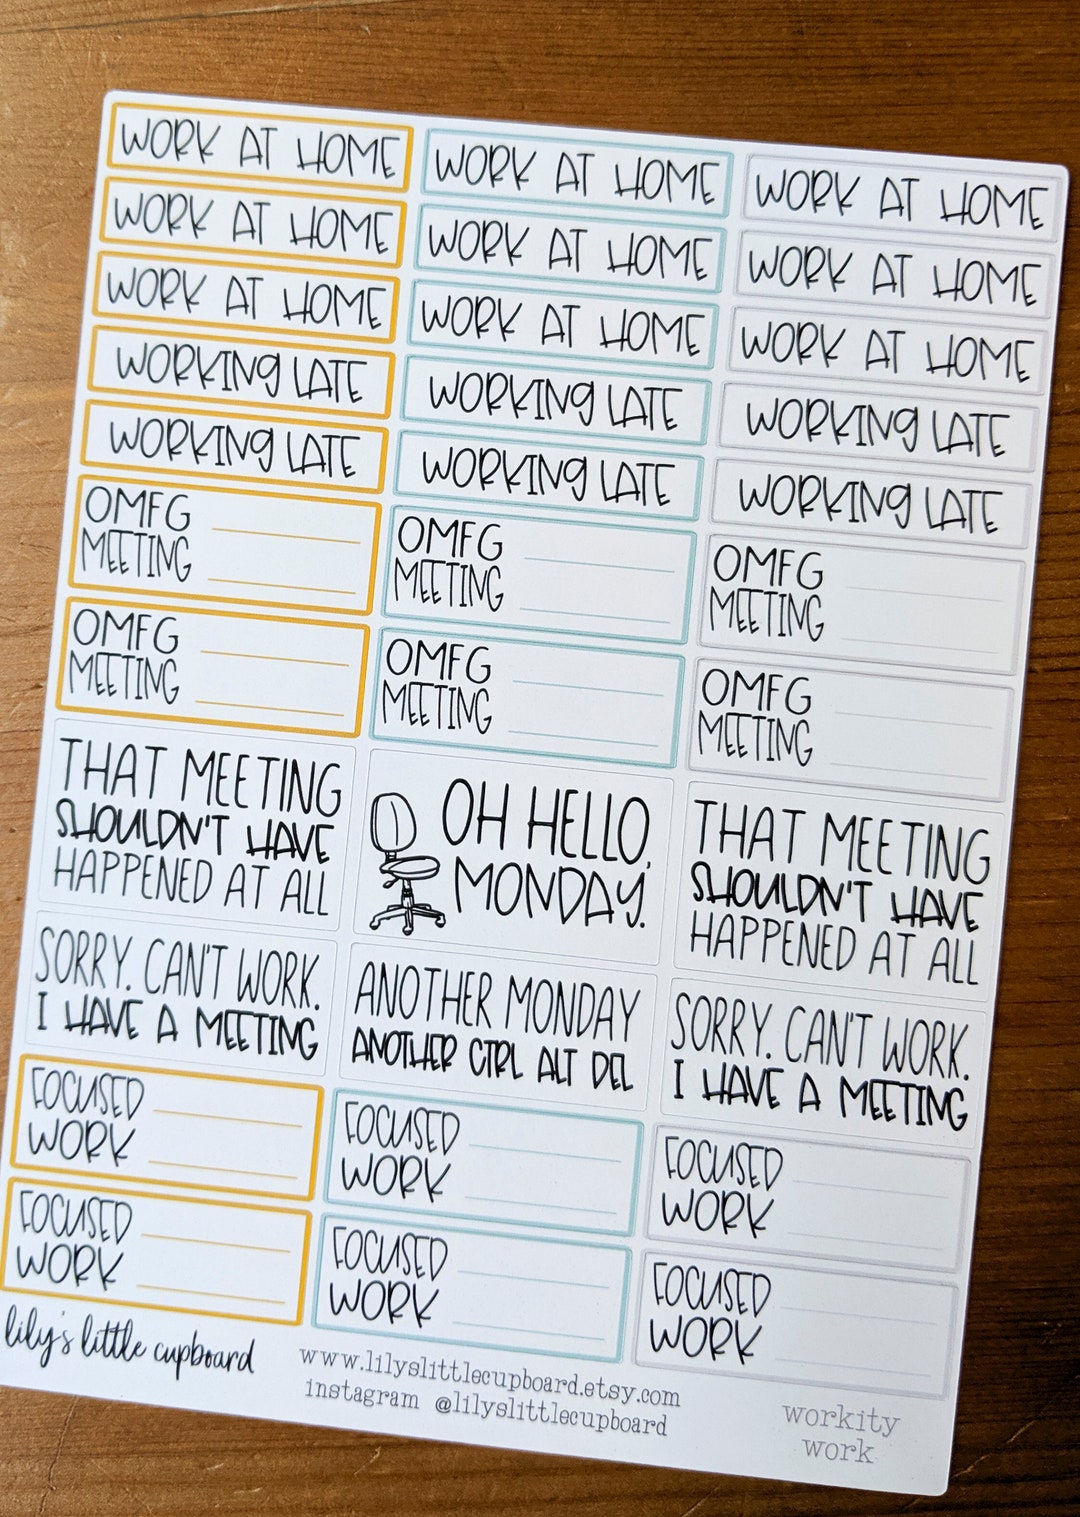 WORK AT HOME
WORK AT HOME
WORK AT HOME
WORK AT HOME
WORK AT HOME
WORK AT HOME
WORK AT HOME
WORK AT HOME
WORK AT HOME
WORKING LATE
WORKING LATE
WORKING LATE
WORKING LATE
WORKING LATE
WORKING LATE
OMFG
MEETING
OMFG
MEETING
OMFG
MEETING
OMFG
MEETING
OMFG
MEETING
OMFG
MEETING
THAT MEETING
SHOULDN'T HAVE
HAPPENED AT ALL
OH HELLO,
MONDAY.
THAT MEETING
SHOULDN'T HAVE
HAPPENED AT ALL
SORRY. CAN'T WORK.
I HAVE A MEETING
ANOTHER MONDAY
ANOTHER CTRL ALT DEL
SORRY. CAN'T WORK.
I HAVE A MEETING
FOCUSED
WORK
FOCUSED
WORK
FOCUSED
WORK
FOCUSED
WORK
FOCUSED
WORK
FOCUSED
WORK
lily's little cupboard
www.lilyslittlecupboard.etsy.com
instagram @lilyslittlecupboard
workity
work